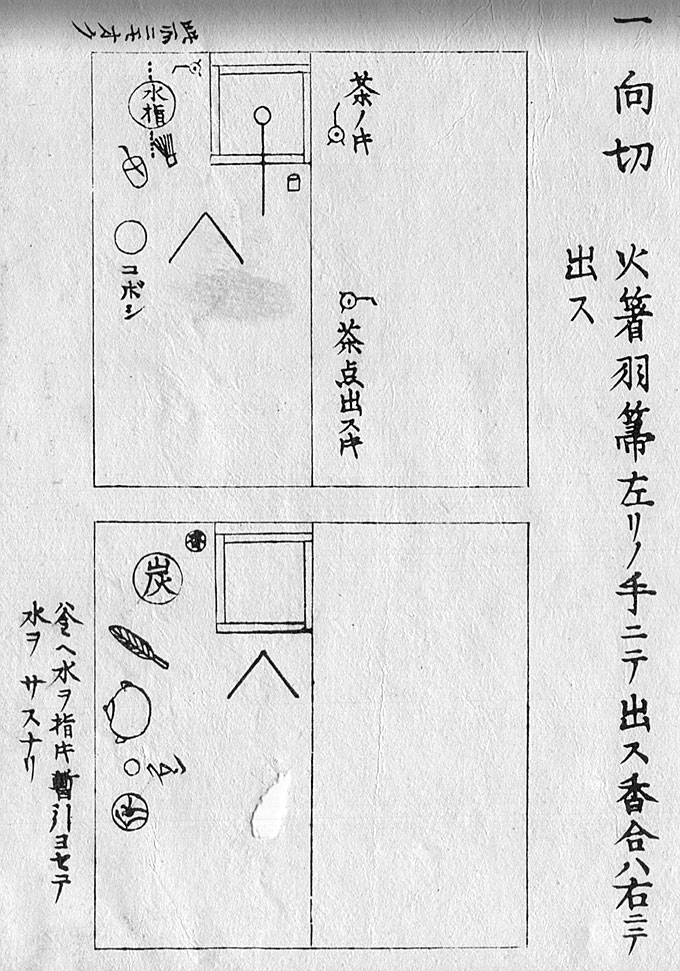 一 向切 火箸羽箒左リノ手ニテ出ス香合ハ右ニテ
出ス
茶ノ时
茶点出スキ
水指
コボシ
香
炭
釜ヘ水ヲ指キ暫引ヨセテ
水ヲサスナリ